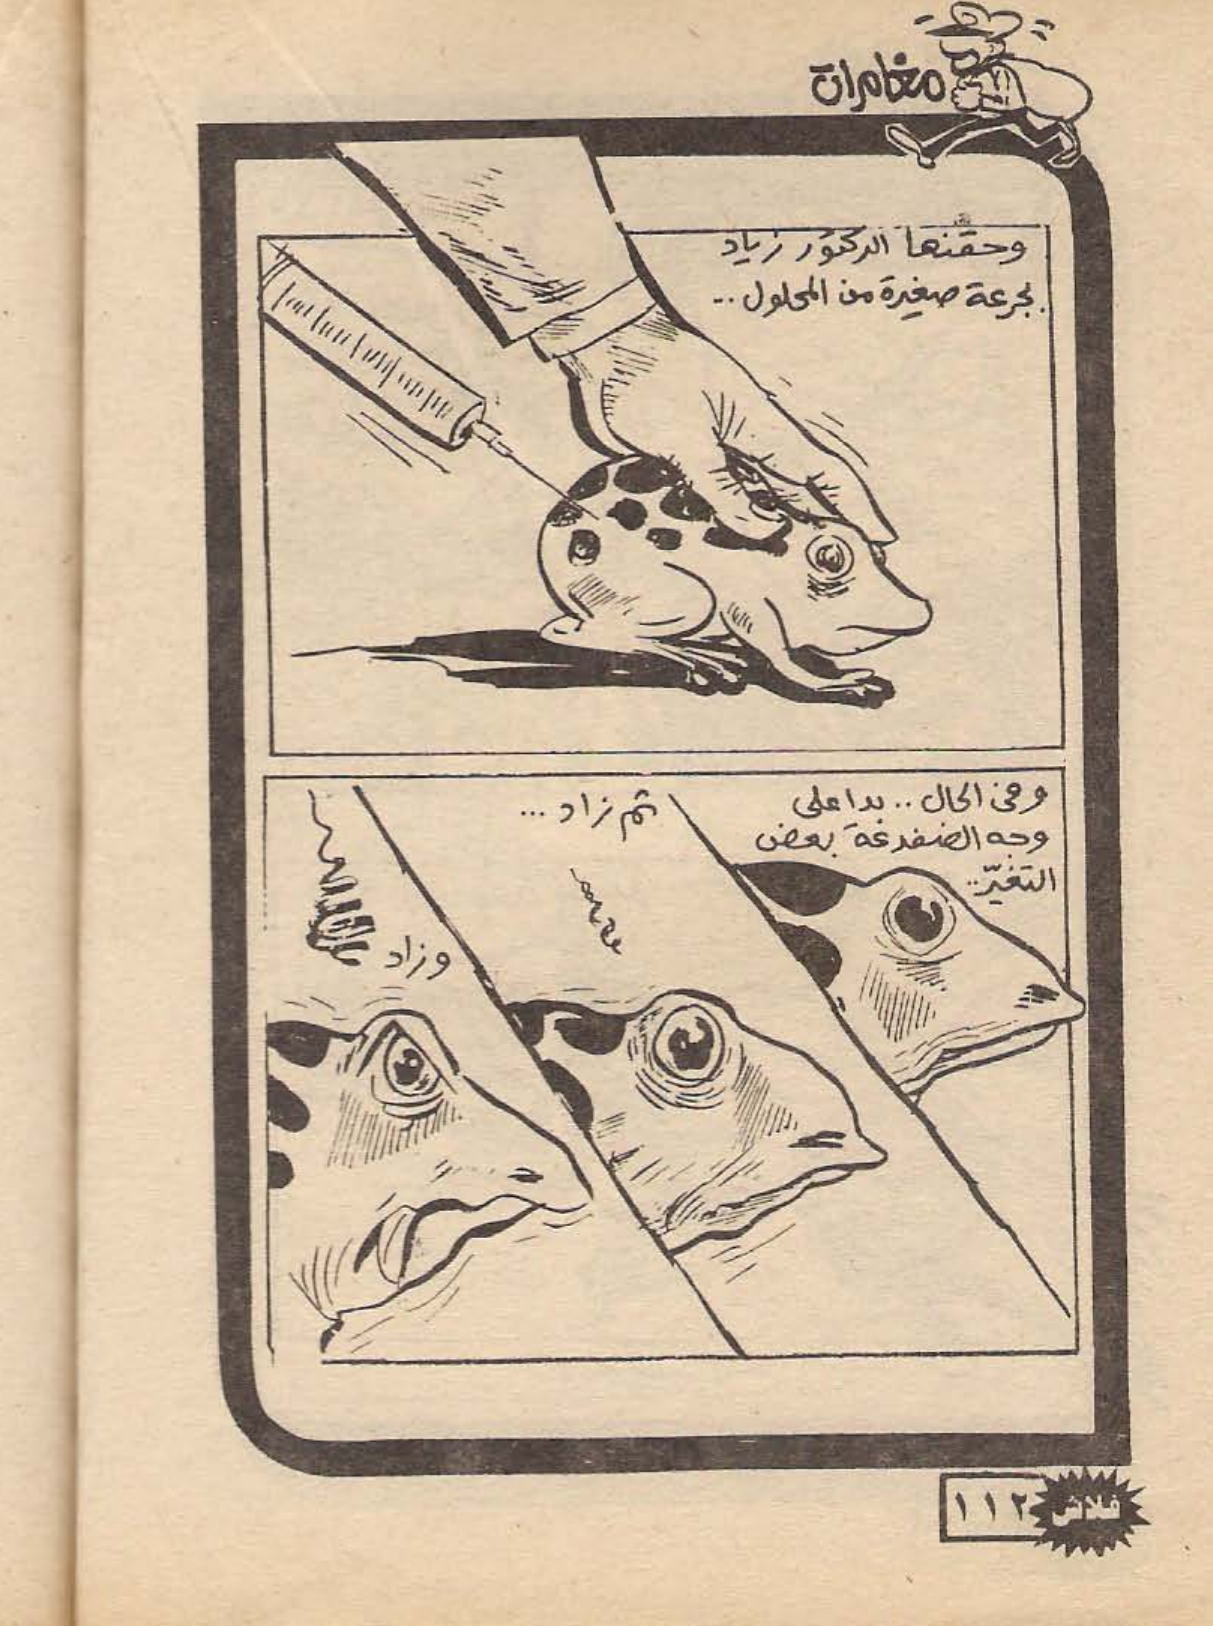 مغامرات
وحقنها الدكتور زياد
بجرعة صغيرة من المحلول ..
وفى الحال .. بدا على
وجه الضفدعة بعض
التغيّر..
ثم زاد ...
وزاد
فلاش ١١٢